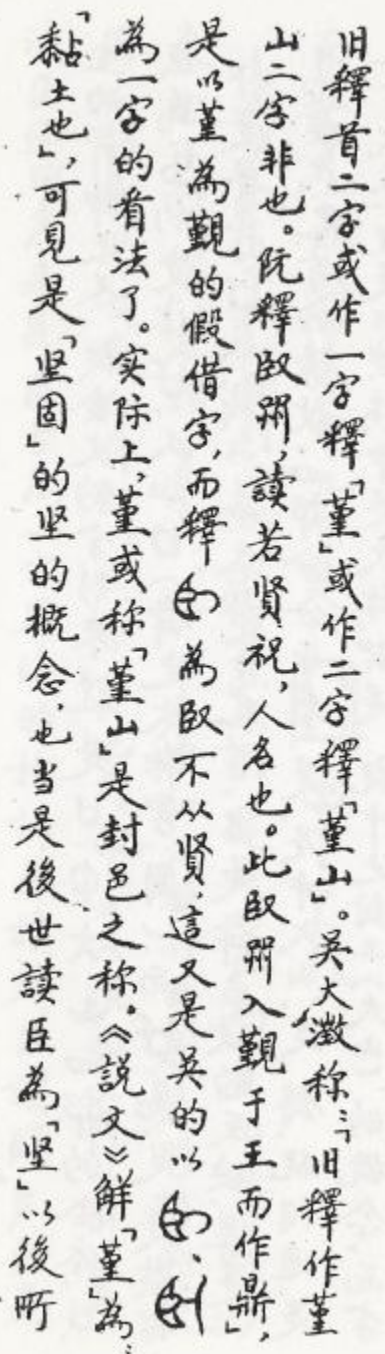 旧釋首二字或作一字釋「堇」或作二字釋「堇山」。吴大澂称:「旧釋作堇
山二字非也。阮釋臤，讀若賢祝，人名也。此臤入覲于王而作鼎」，
是以堇為覲的假借字，而釋為臤不从賢，這又是吴的以、
為一字的看法了。实际上，堇或称「堇山」是封邑之称。《説文》解「堇」為：
「黏土也」，可見是「坚固」的坚的概念，也当是後世讀臣為「坚」以後所